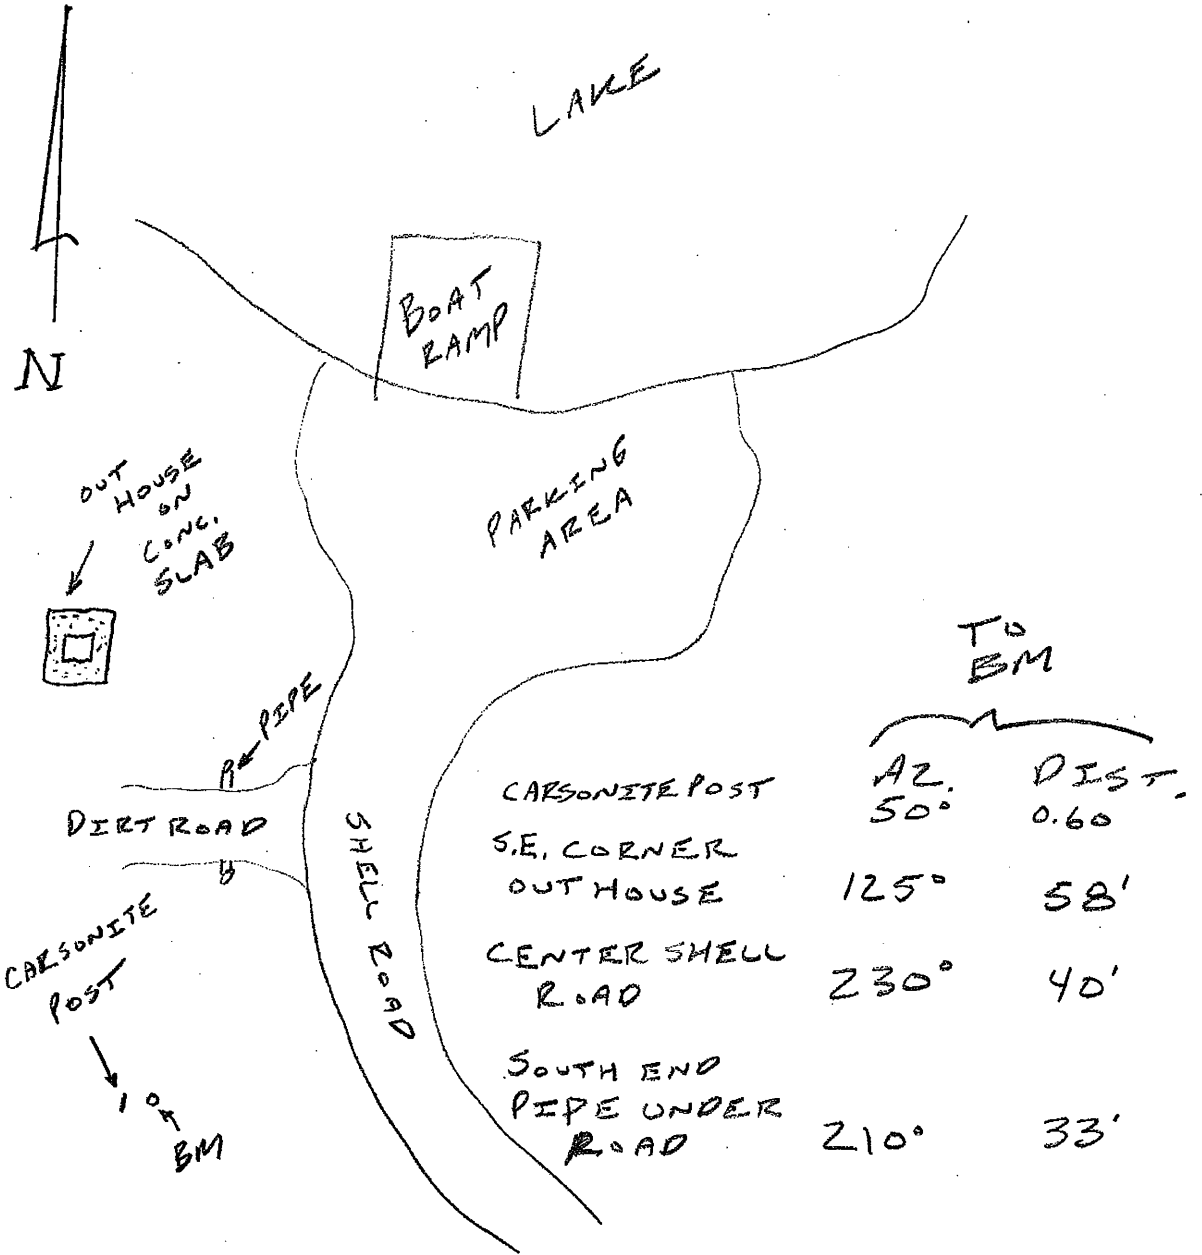 LAKE
N
BOAT
RAMP
OUT
HOUSE
ON
CONC.
SLAB
PARKING
AREA
PIPE
DIRT ROAD
SHELL ROAD
CARSONITE
POST
BM
TO
BM
AZ. DIST.
CARSONITE POST 50° 0.60
S.E. CORNER
OUT HOUSE 125° 58'
CENTER SHELL
ROAD 230° 40'
SOUTH END
PIPE UNDER
ROAD 210° 33'